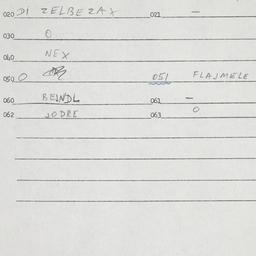 020 DI ZELBEZAX 021 —
030 O
040 NEX
050 O 051 FLAJMELE
060 BEINDL 061 —
062 JODRE 063 O